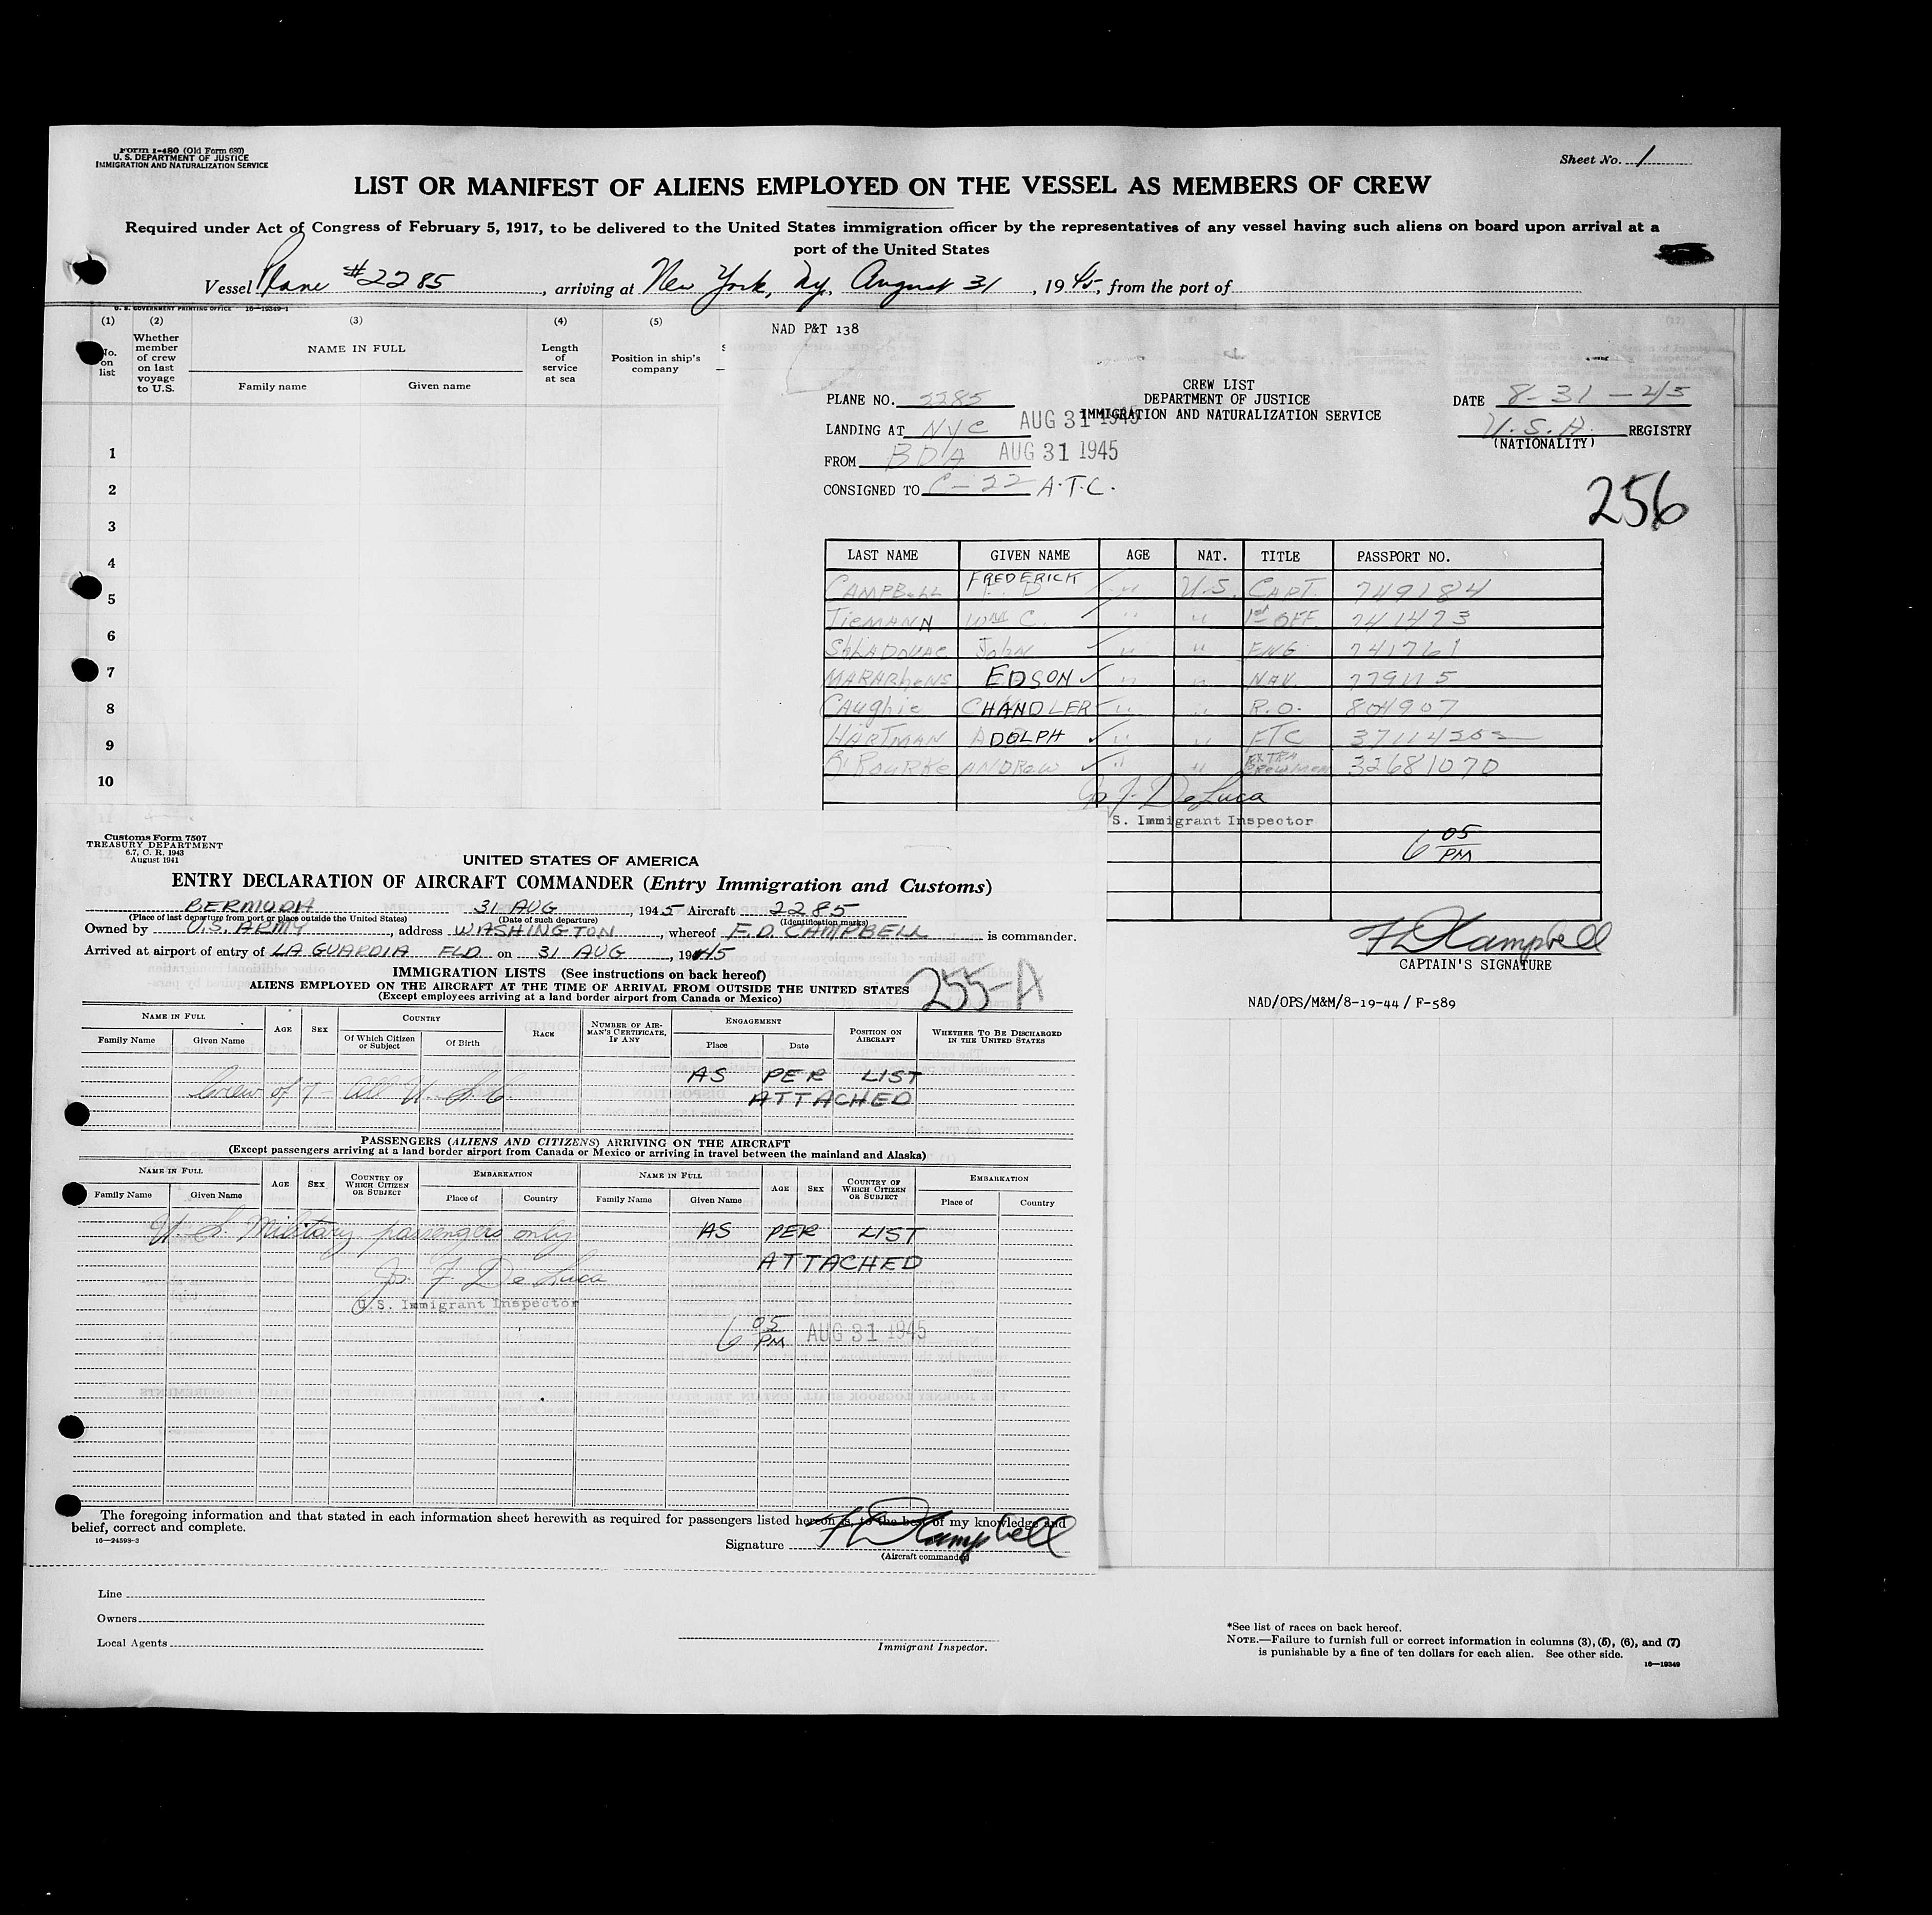 Form I-480 (Old Form 680)
U. S. DEPARTMENT OF JUSTICE
IMMIGRATION AND NATURALIZATION SERVICE
Sheet No. 1
LIST OR MANIFEST OF ALIENS EMPLOYED ON THE VESSEL AS MEMBERS OF CREW
Required under Act of Congress of February 5, 1917, to be delivered to the United States immigration officer by the representatives of any vessel having such aliens on board upon arrival at a
port of the United States
Vessel Plane #2285, arriving at New York, Ny, August 31, 1945, from the port of
U. S. GOVERNMENT PRINTING OFFICE 16—19349-1
(1) (2) (3) (4) (5)
No. on list
Whether member of crew on last voyage to U.S.
NAME IN FULL
Family name Given name
Length of service at sea
Position in ship's company
1
2
3
4
5
6
7
8
9
10
NAD P&T 138
CREW LIST
DEPARTMENT OF JUSTICE
IMMIGRATION AND NATURALIZATION SERVICE
PLANE NO. 2285
DATE 8-31-45
LANDING AT NYC AUG 31 1945
U.S.A. REGISTRY
(NATIONALITY)
FROM BDA AUG 31 1945
CONSIGNED TO C-22 A.T.C.
256
LAST NAME GIVEN NAME AGE NAT. TITLE PASSPORT NO.
CAMPBELL FREDERICK U.S. CAPT. 749184
TIEMANN Wm C. " " 1st OFF. 741473
John " " ENG 741761
EDSON " " NAV.
CAughie CHANDLER " " R.O. 804907
HARTMAN ADOLPH " " FTC
O'ROURKE ANDREW " " EXTRA CREW MEM 32681070
Jos F. De Luca
S. Immigrant Inspector
6 05 PM
F D Campbell
CAPTAIN'S SIGNATURE
NAD/OPS/M&M/8-19-44 / F-589
Customs Form 7507
TREASURY DEPARTMENT
6.7, C. R. 1943
August 1941
UNITED STATES OF AMERICA
ENTRY DECLARATION OF AIRCRAFT COMMANDER (Entry Immigration and Customs)
BERMUDA 31 AUG, 1945 Aircraft 2285
(Place of last departure from port or place outside the United States) (Date of such departure) (Identification marks)
Owned by U.S. ARMY, address WASHINGTON, whereof F.D. CAMPBELL is commander.
Arrived at airport of entry of LA GUARDIA FLD. on 31 AUG, 1945
IMMIGRATION LISTS (See instructions on back hereof)
255-A
ALIENS EMPLOYED ON THE AIRCRAFT AT THE TIME OF ARRIVAL FROM OUTSIDE THE UNITED STATES
(Except employees arriving at a land border airport from Canada or Mexico)
NAME IN FULL AGE SEX COUNTRY RACE NUMBER OF AIRMAN'S CERTIFICATE, IF ANY ENGAGEMENT POSITION ON AIRCRAFT WHETHER TO BE DISCHARGED IN THE UNITED STATES
Family Name Given Name Of Which Citizen or Subject Of Birth Place Date
AS PER LIST
Crew of 7 - All U. S. C. ATTACHED
PASSENGERS (ALIENS AND CITIZENS) ARRIVING ON THE AIRCRAFT
(Except passengers arriving at a land border airport from Canada or Mexico or arriving in travel between the mainland and Alaska)
NAME IN FULL AGE SEX COUNTRY OF WHICH CITIZEN OR SUBJECT EMBARKATION NAME IN FULL AGE SEX COUNTRY OF WHICH CITIZEN OR SUBJECT EMBARKATION
Family Name Given Name Place of Country Family Name Given Name Place of Country
U. S. Military passengers only AS PER LIST
ATTACHED
Jos. F. De Luca
U.S. Immigrant Inspector
6 05 PM AUG 31 1945
The foregoing information and that stated in each information sheet herewith as required for passengers listed hereon is, to the best of my knowledge and
belief, correct and complete.
16—24598-3
Signature F D Campbell
(Aircraft commander)
Line
Owners
Local Agents
Immigrant Inspector.
*See list of races on back hereof.
NOTE.—Failure to furnish full or correct information in columns (3), (5), (6), and (7)
is punishable by a fine of ten dollars for each alien. See other side.
16—19349